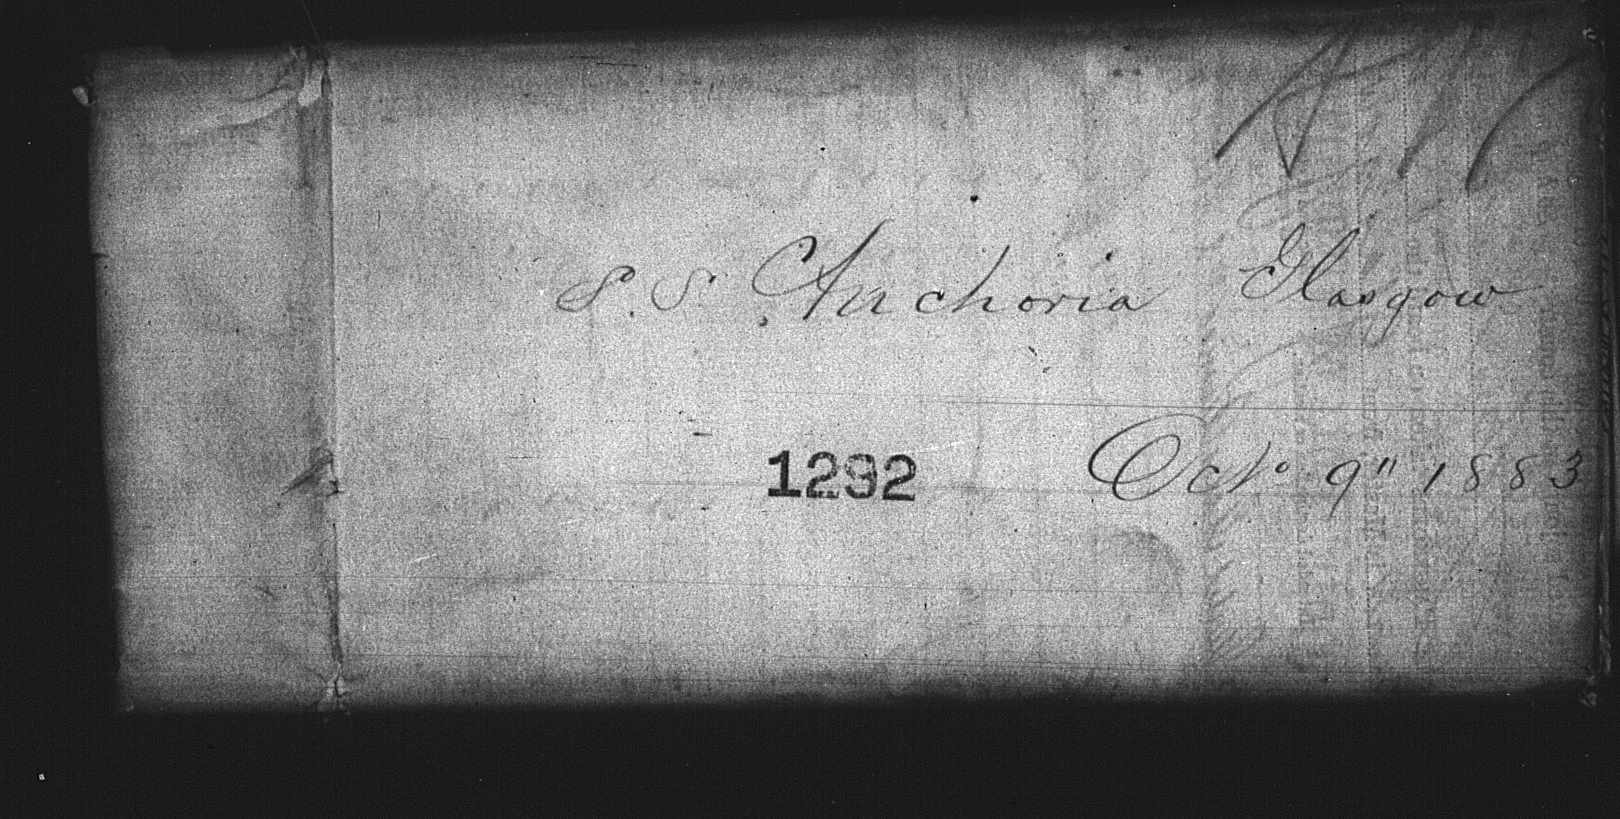 S. S. Anchoria Glasgow
1292
Octo 9" 1883